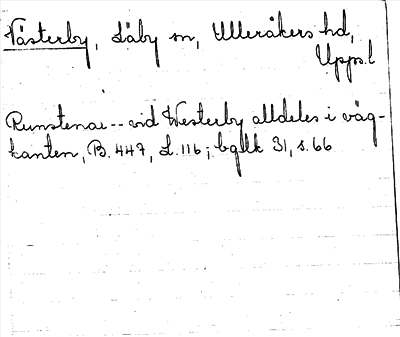 Västerby, Läby sn, Ulleråkers hd,
Upps.l
Runstenar -- vid Westerby alldeles i väg-
kanten, B. 447, L. 116; bautk 31, s. 66